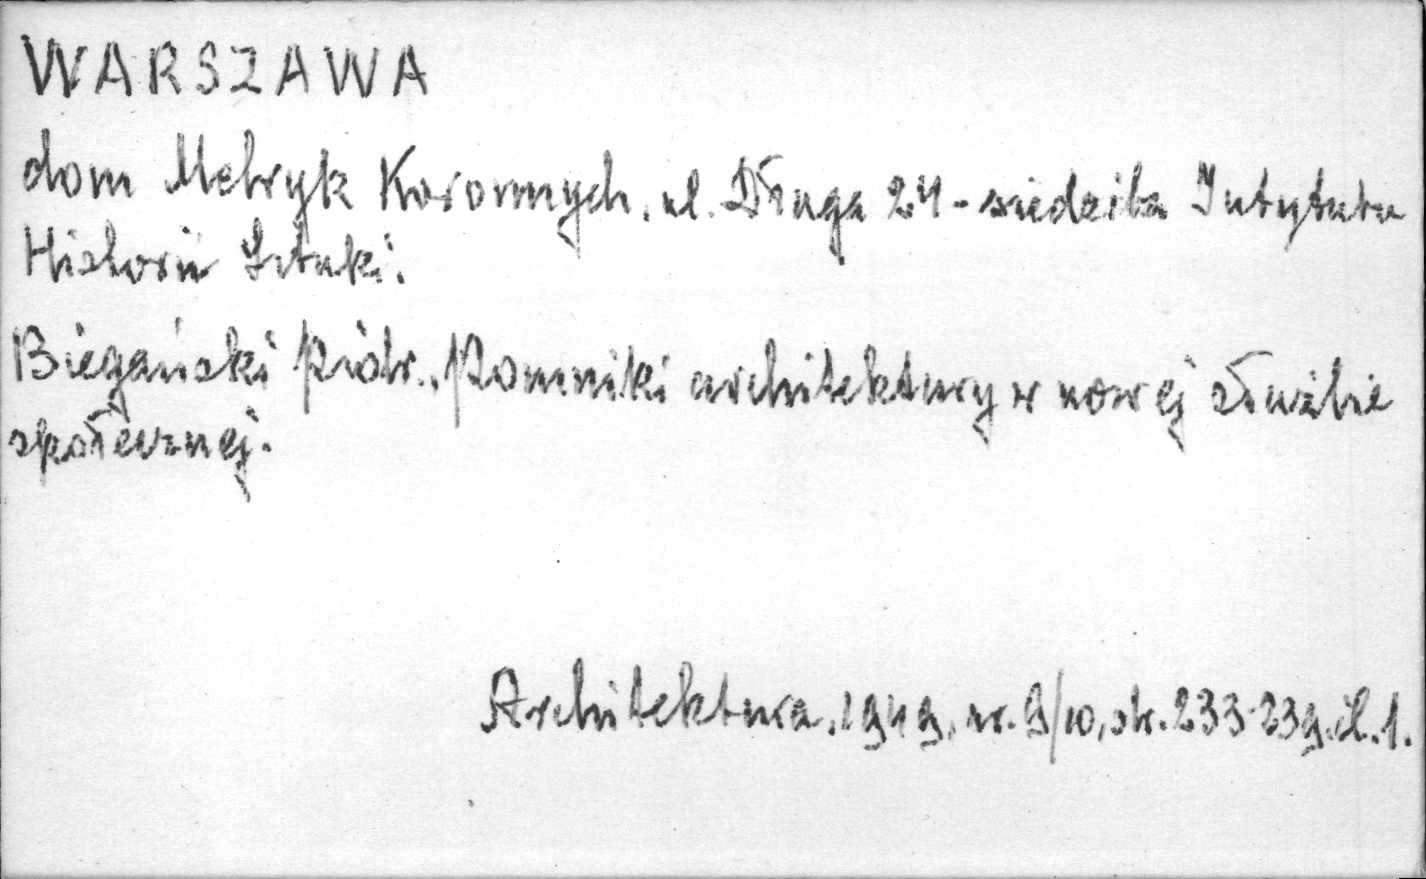 WARSZAWA
dom Metryk Koronnych, ul. Długa 24 - siedziba Instytutu
Historii Sztuki.
Biegański Piotr., Pomniki architektury w nowej służbie
społecznej.
Architektura, 1949, nr. 9/10, str. 233-239, il. 1.